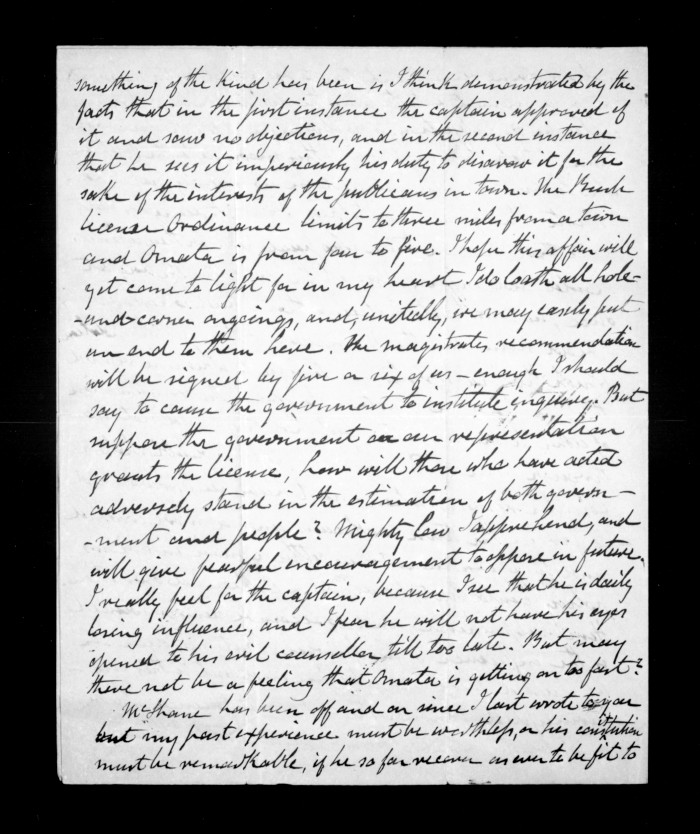 something of the kind has been is I think demonstrated by the
facts that in the first instance the captain approved of
it and saw no objections, and in the second instance
that he sees it imperiously his duty to disavow it for the
sake of the interests of the publicans in town. The Bush
license Ordinance limits to three miles from a town
and Omata is from four to five. I hope this affair will
yet come to light for in my heart I do loath all hole-
-and-corner ongoings, and, unitedly, we may easily put
an end to them here. The magistrates recommendation
will be signed by five or six of us - enough I should
say to cause the government to institute inquiry. But
suppose the government on our representation
grants the license, how will those who have acted
adversely stand in the estimation of both govern-
-ment and people? Mighty low I apprehend, and
will give fearful encouragement to oppose in future.
I really feel for the captain, because I see that he is daily
losing influence, and I fear he will not have his eyes
opened to his evil counsellor till too late. But may
there not be a feeling that Omata is getting on too fast?
McShane has been off and on since I last wrote to you
but my past experience must be worthless, or his constitution
must be remarkable, if he so far recover as ever to be fit to